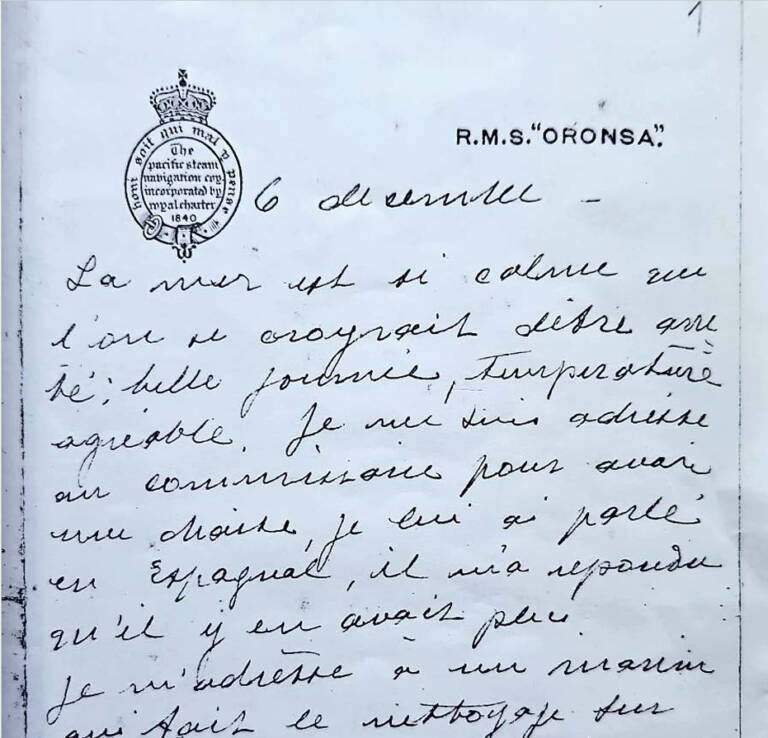 1
R.M.S. "ORONSA".
honi soit qui mal y pense
The
pacific steam
navigation coy.
incorporated by
royal charter
1840
6 decembre -
La mer est si calme que
l'on se croyrait d'être arre
té; belle journée, temperature
agréable. Je me suis adresse
au commissaire pour avoir
une chaise, je lui ai parlé
en Espagnol, il m'a repondu
qu'il y en avait plus
Je m'adrèsse à un marin
qui fait le nettoyage sur